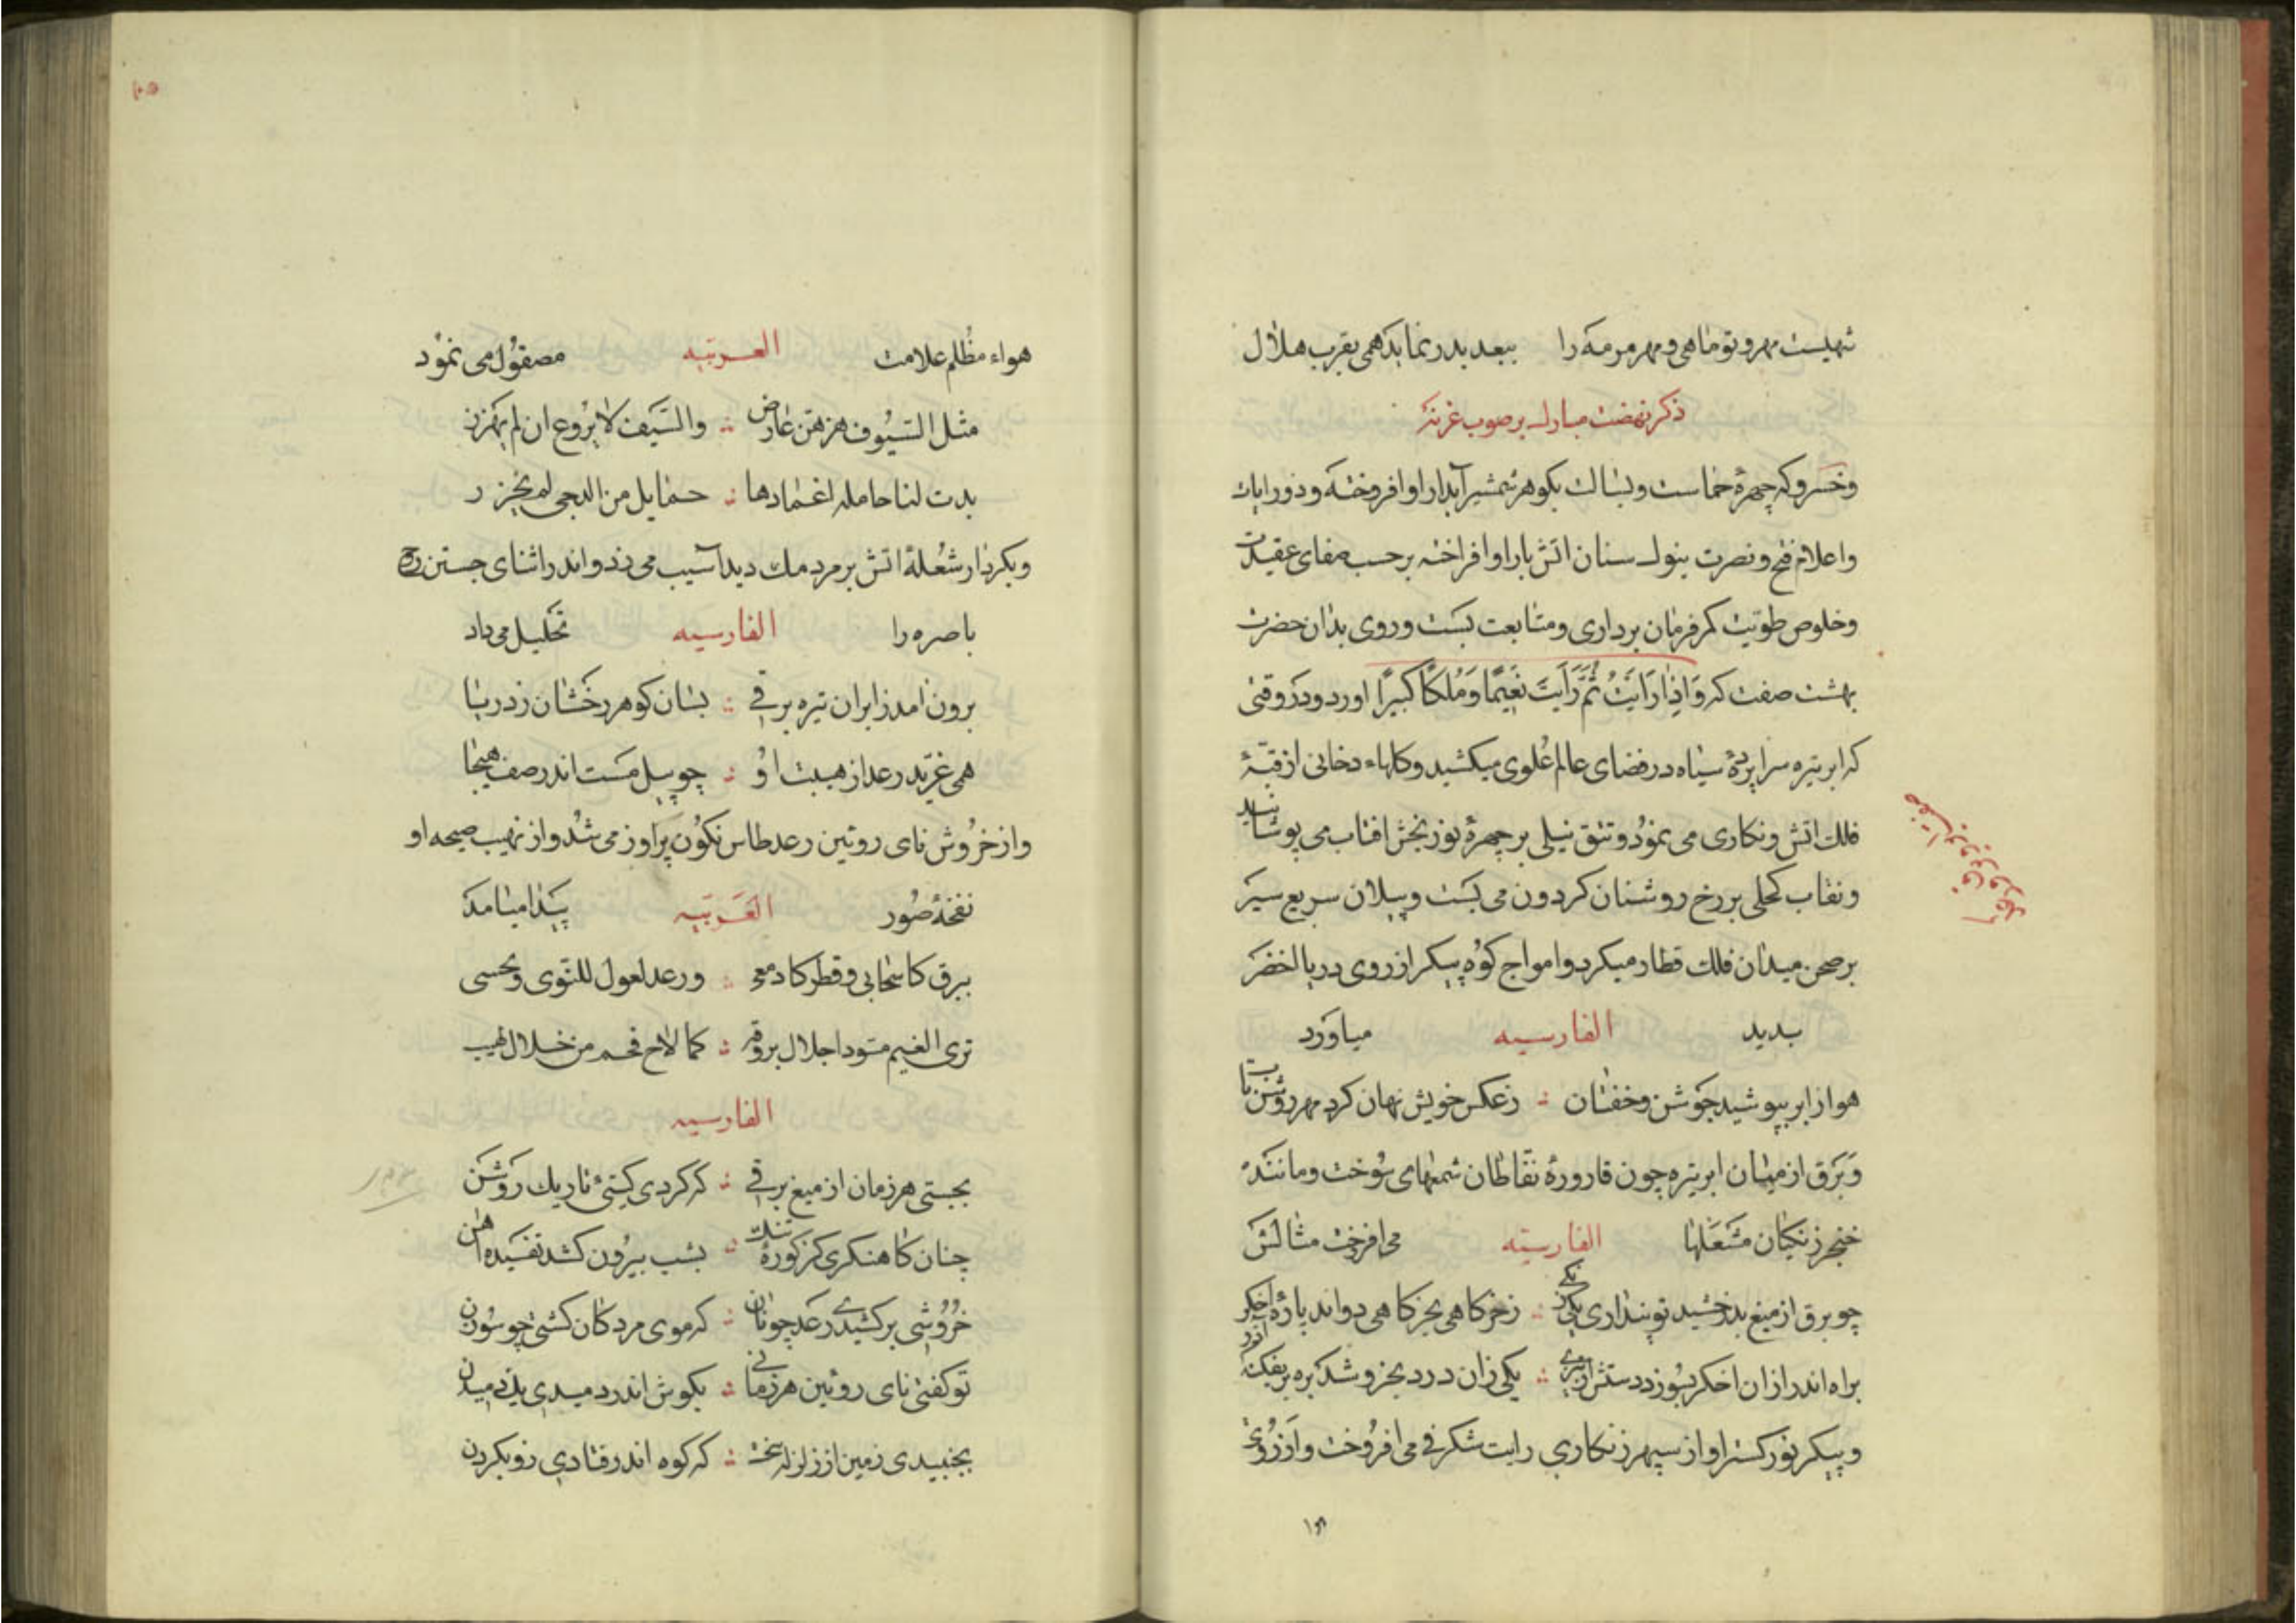 شهیست مهر و تو ماهی و مهر مر مه را ببعد بدر نماید همی بقرب هلال
ذکر نهضت مبارک بر صوب غزنه
و خسرو که چهرهٔ حماست و بسالت بکوهر شمشیر آبدار او افروخته و ذور ایات
و اعلام فتح و نصرت بنوک سنان اتش بار او افراخته بر حسب صفای عقیدت
و خلوص طویت کمر فرمان برداری و متابعت بست و روی بدان حضرت
بهشت صفت که وَاِذٰا رَاَیْتَ ثَمَّ رَاَیْتَ نَعیٖمًا وَمُلْکًا کَبیٖرًا اورد و در وقتی
که ابر تیره سراپردهٔ سیاه در فضای عالم عُلوی میکشید و کلهاء دخانی از قبهٔ
فلک اتش و نکاری می نمود و تتق نیلی بر چهرهٔ نور بخش افتاب می پوشانید
و نقاب کحلی بر رخ روشنان کردون می بست و پیلان سریع سیر
بر صحن میدان فلک قطار میکرد و امواج کوه پیکر از روی دریا الخضر
بدید الفارسیه میاورد
هوا ز ابر بپوشید جوشن و خفتان ؞ ز عکس خویش نهان کرد مهر روشن تاب
و برق از میان ابر تیره چون قارورهٔ نفاطان شمعهای سوخت و مانند
خنجر زنکیان مشعلها الفارسیّه می افرخت مثالش
چو برق از میغ بدرخشید تو پنداری یکی زنکی ؞ ز خرکاهی بخرکاهی دواند پارهٔ اخکر
براه اندر ازان اخکر بسوزد دستش ؞ یکی زان درد بخروشد بره بر بفکند اندر
و پیکر نور کستر او از سپهر زنکاری رایت شنکرفی می افروخت و از روی
۱۵۱
هواء مظلم علامت العربیّه مصقول می نمود
مثل السّیُوف هزهّن عارض ؞ والسّیف لا یرُوع ان لم یهزز
بدت لنا حامله اغمادها ؞ حمایل من الدجی لم یخرز
و بکردار شعلهٔ اتش بر مردمک دید آسیب می زد و اندر اثنای جستن روح
باصره را الفارسیه تحلیل می داد
برون امد ز ابران تیره برقی ؞ بسان کوهر رخشان ز دریا
همی غرّید رعد از هیبت او ؞ چو پیل مست اندر صف هیجا
و از خروش نای روئین رعد طاس نکون پر اوز می شد و از نهیب صیحه او
نفخهٔ صور العَربّیه پیدا میامد
ببرق کاسحابی و قطر کادمعی ؞ و رعد لعول للنّوی و نحیبی
تری الغیم مسودا جلال بروقه ؞ کما لاح فحم من خلال لهیب
الفارسیه
بجستی هر زمان از میغ برقی ؞ که کردی کیتئ تاریک روشن
چنان کاهنکری کز کورهٔ تنک ؞ بشب بیرون کشد تفسیده اهن
خروشی برکشیدی رعد چونان ؞ که موی مردکان کشتی چو سوزن
تو کفتی نای روئین هر زمانی ؞ بکوش اندر دمیدی یک دمیدن
بجنبیدی زمین از زلزله سخت ؞ که کوه اندر فتادی زو بکردن